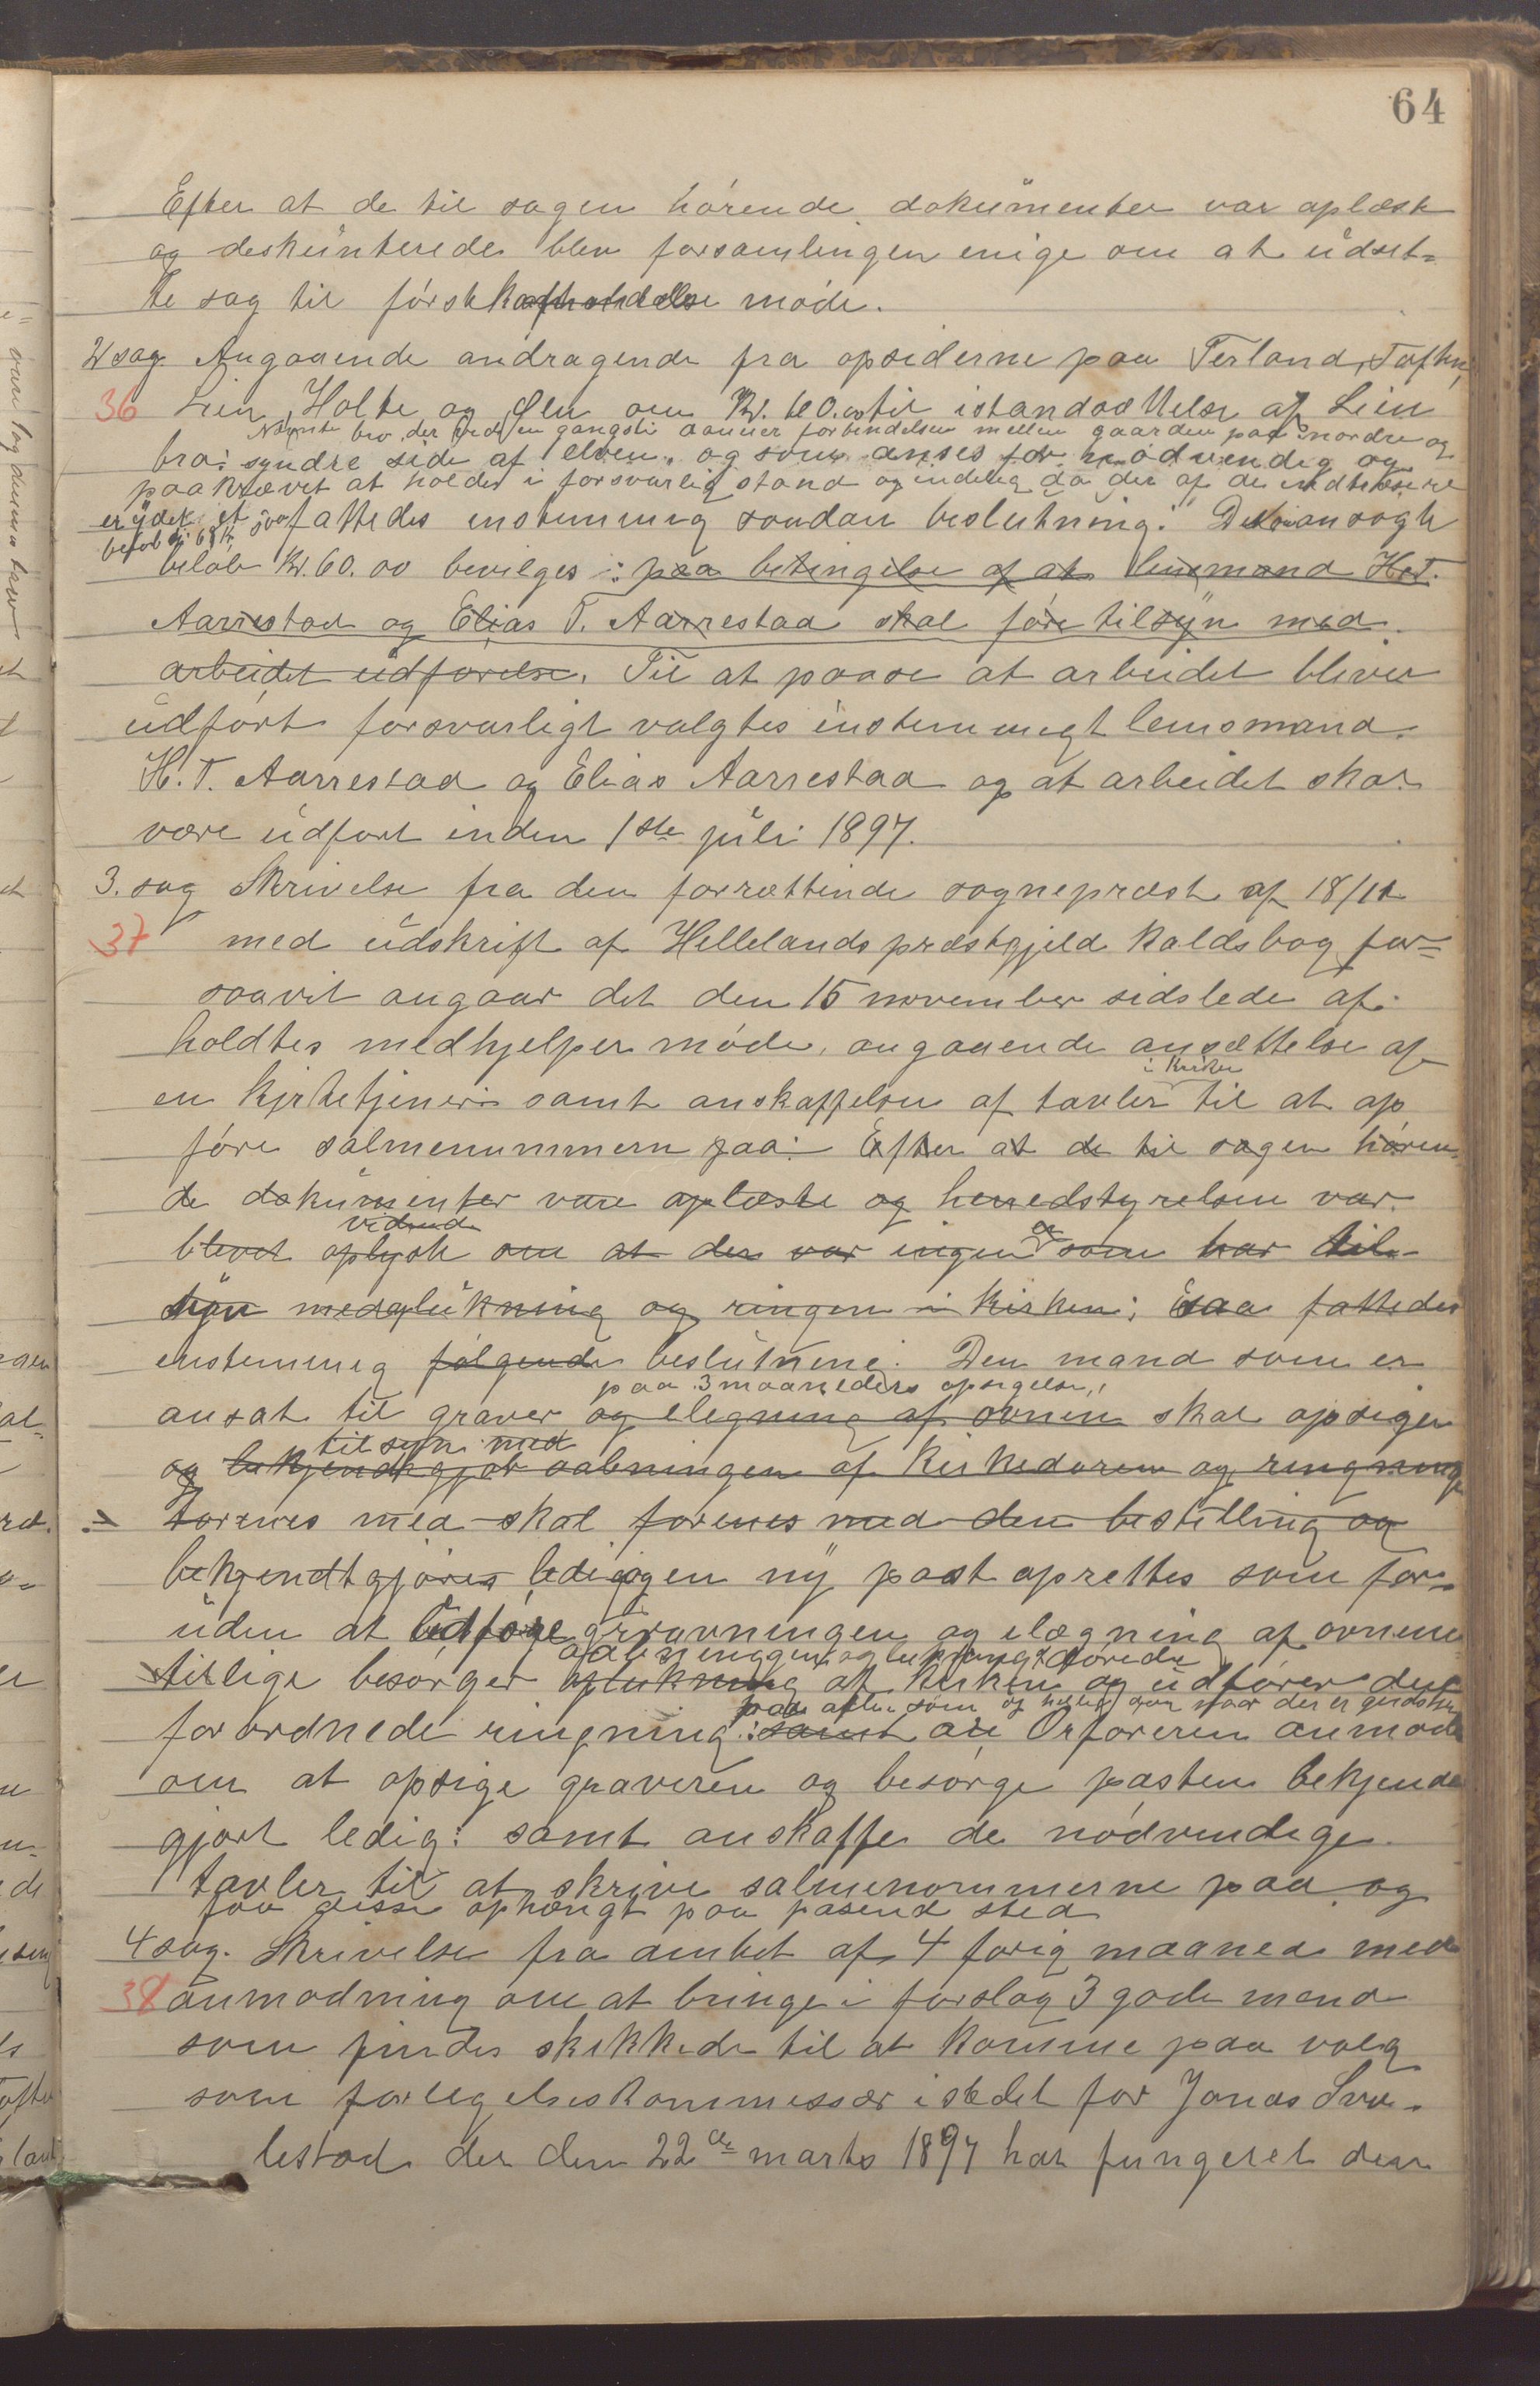 64
Efter at de til sagen hørende dokumenter var oplæst
og deskunterede blev forsamlingen enige om at udset-
te sag til först møde.
2 sag Angaaende andragende fra opsiderne paa Terland, Toften,
36 Lien, Holte og om Kr. 60.00 til istandsættelse af Lien
Nævnte bro der ved en gangsti danner forbindelsen mellem gaarden paa nordre og
bro: syndre side af elven. og som anses for nødvendig og
paakrævet at holdes i forsvarlig stand og da der af de
er ydet et
beløb saa fattedes enstemmig saadan beslutning: Det ansøgte
beløb Kr. 60.00 bevilges : paa betingelse af at lensmand H.T.
Aarrestad og Elias T. Aarrestad skal före tilsyn med
arbeidet udförelse. Til at paase at arbeidet bliver
udført forsvarligt valgtes enstemmigt lensmand
H. T. Aarrestad og Elias Aarrestad og at arbeidet skal
være udført inden 1ste juli 1897.
3. sag Skrivelse fra den forrættende sogneprest af 18/11
37 med udskrift af Hellelands præstegjeld kaldsbog for-
saavit angaar det den 15 november sidstlede af-
holdtes medhjelper møde, angaaende ansættelse af
i kirken
en kirketjener samt anskaffelsen af tavler til at op
føre salmenummern paa: Efter at de til sagen høren-
de dokumenter vare oplæste og herredstyrelsen var
vidende
blevet oplyst om at der var ingen som har til-
syn med lukning og ringen i kirken; saa fattedes
enstemmig følgende beslutning. Den mand som er
paa 3 maaneders opsigelse,
ansat til graver og ilegning af ovnen skal opsiges
tilsyn med
og bekjendtgjør aabningen af kirkedoren og ringning
forenes med skal forenes med den bestilling og
bekjendtgjøres ledig og en ny post oprettes som for-
uden at udføre gravningen og ilægning af ovnene
aabninggen og lukning dørede
tillige besørger oplukning af kirken og udfører den
paa aften som og naar der er gudstj
forordnede ringning: samt Orføreren anmode
om at opsige graveren og besørge posten bekjend
gjort ledig: samt anskaffe de nødvendige
tavler til at skrive salmenommerne paa og
faa disse ophængt paa pasend sted
4 sag. Skrivelse fra amtet af 4 forig maaned med
38 anmodning om at bringe i forslag 3 gode mend
som findes skikkede til at komme paa valg
som forligelseskommissær istedet for Jonas Sve-
lestad der den 22de marts 1897 har fungeret den